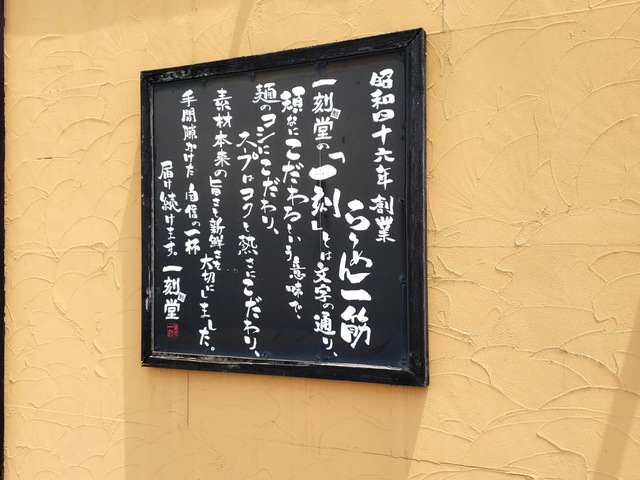 昭和四十六年 創業
らーめん一筋
一刻堂の「一刻」とは文字の通り、
頑なにこだわるという意味で、
麺のコシにこだわり、
スープはコクと熱さにこだわり、
素材本来の旨さと新鮮さを
大切にしました。
手間隙かけた自信の一杯
届け続けます。一刻堂